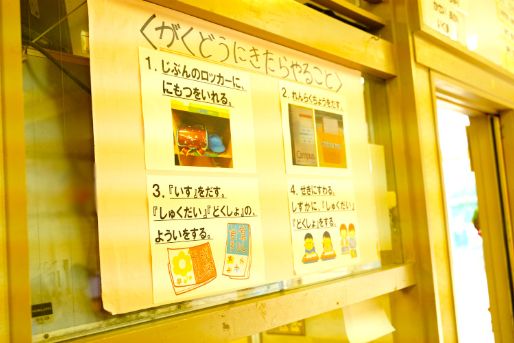 〈がくどうにきたらやること〉
1. じぶんのロッカーに、
にもつをいれる。
2. れんらくちょうをだす。
Campus
3. 『いす』をだす。
『しゅくだい』『どくしょ』の、
よういをする。
4. せきにすわる。
しずかに、『しゅくだい』
『どくしょ』をする。